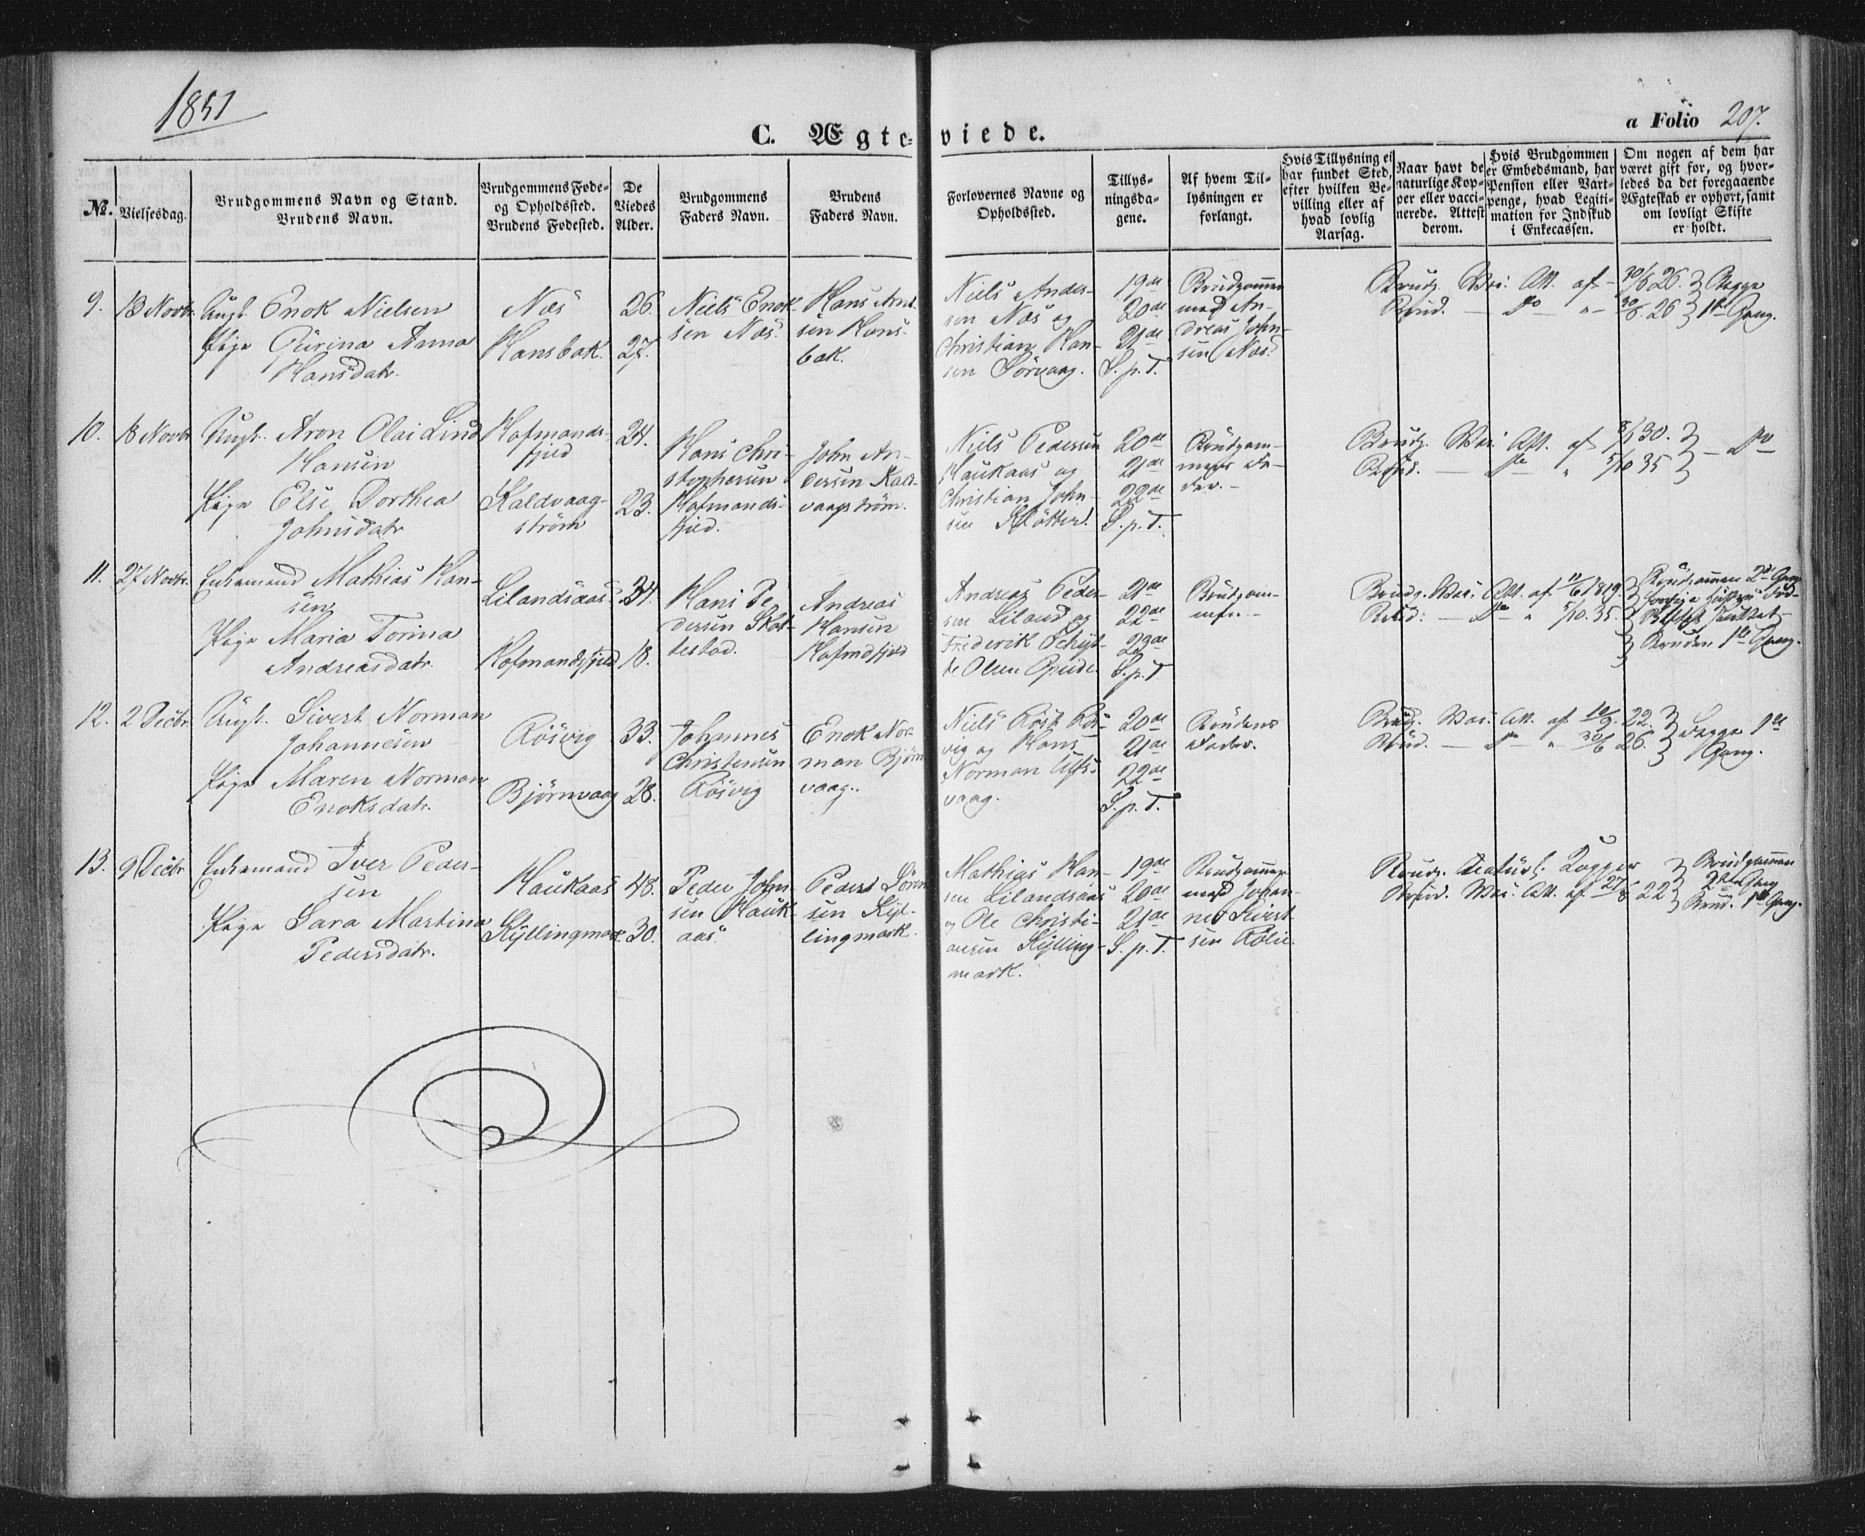 1851
C. Ægte-
viede.
a Folio 207.
No.
Vielsesdag.
Brudgommens Navn og Stand.
Brudens Navn.
Brudgommens Føde-
og Opholdssted.
Brudens Fødested.
De
Viedes
Alder.
Brudgommens
Faders Navn.
Brudens
Faders Navn.
Forlovernes Navne og
Opholdssted.
Tillys-
ningsda-
gene.
Af hvem Til-
lysningen er
forlangt.
Hvis Tillysning ei
har fundet Sted,
efter hvilken Be-
villing eller af
hvad lovlig
Aarsag.
Naar havt de
naturlige Kop-
per eller vacci-
nerede. Attest
derom.
Hvis Brudgommen
er Embedsmand, har
Pension eller Vart-
penge, hvad Legiti-
mation for Indskud
i Enkecassen.
Om nogen af dem har
været gift før, og hvor-
ledes da det foregaaende
Ægteskab er ophørt, samt
om lovligt Skifte
er holdt.
9.
13 Novbr.
Ungk. Enok Nielsen
Pige Gurina Anna
Hansdatr.
Næs
Hansbak.
26.
27.
Niels Enok-
sen Næs.
Hans And
sen Hans-
bak.
Niels Ander-
sen Næs og
Christian Han-
sen Sörvaag.
19de
20de
21de
S. p. T.
Brudgommen
med An-
dreas John-
sen Næs.
Brudg. Vac. Att. af 30/6 26.
Brud. — Do — " 30/6 26
Begge
1ste Gang.
10.
18 Novbr
Ungk. Aron Olai Lind
Hansen
Pige Else Dorthea
Johnsdatr
Hofmands-
fjeld
Kaldvaag-
ström
24.
23.
Hans Chri-
stophersen
Hofmands-
fjeld.
John An-
dersen Kald-
vaagström.
Niels Pedersen
Haukaas og
Christian John-
sen
20de
21de
22de
S. p. T.
Brudgom-
mens Fa-
der.
Brudg. Vac. Att. af 8/7 30.
Brud. — Do " 5/10 35
— Do
11.
27 Novbr.
Enkemand Mathias Han-
sen
Pige Maria Torina
Andreasdatr.
Lilandsaas
Hofmandsfjeld
34.
18.
Hans Pe-
dersen Skot-
testad.
Andreas
Hansen
Hofmdfjeld
Andreas Peder-
sen Liland og
Frederik Schyt-
te Olsen
21de
22de
23de
S. p. T
Brudgom-
men.
Brudg. Vac. Att. af 11/6 1819.
Brud. — Do — " 5/10 35.
Brudgommen 2d Gang
Bruden 1ste Gang.
12.
2 Decbr.
Ungk. Sivert Norman
Johannesen
Pige Maren Norman
Enoksdatr.
Rösvig
Björnvaag
33.
28.
Johannes
Christensen
Rösvig
Enok Nor-
man Björn
vaag.
Niels Röst Rös-
vig og Hans
Norman Ulfs-
vaag.
20de
21de
22de
S. p. T.
Brudens
Fader.
Brudg. Vac. Att. af 10/9 22.
Brud. — Do — " 30/6 26.
Begge 1ste
Gang.
13.
9 Decbr
Enkemand Iver Peder-
sen
Pige Sara Martina
Pedersdatr.
Haukaas
Kyllingmark
48.
30.
Peder John-
sen Hauk-
aas.
Peder Sören
sen Kyl-
lingmark.
Mathias Han-
sen Lilandsaas
og Ole Christi-
ansen Kylling-
mark.
19de
20de
21de
S. p. T.
Brudgommen
med Johan-
nes Sivert-
sen
Brudg. Naturl. Kopper
Brud. Vac. Att. af 27/8 22
Brudgommen
2den Gang
Brud. 1ste Gang.